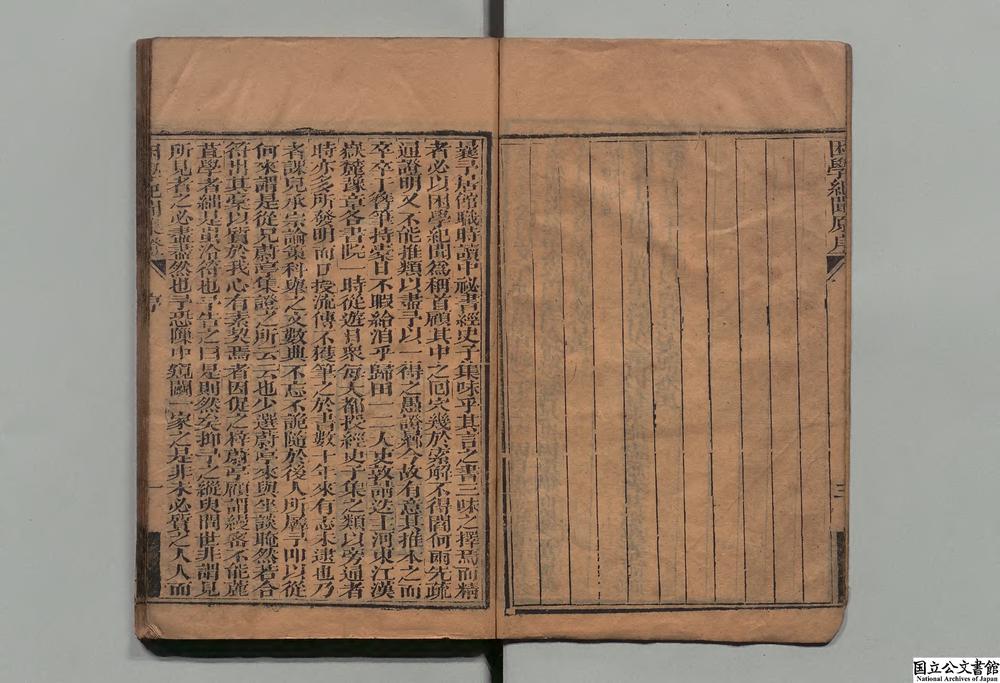 困學紀聞原序
三
曩予居館職時讀中祕書經史子集味乎其言之書三味之擇焉而精
者必以困學紀聞爲稱首顧其中之回穴幾於索解不得閻何兩先疏
通證明又不能推類以盡予以一得之愚證故有意其推本之而
卒卒丁簪筆持槖日不暇給消乎歸田一二人史敦請迭主河東江漢
嶽麓豫章各書院一時從遊日衆每大都授經史子集之類以旁通者
時亦多所發明而口授流傳不獲筆之於書數十年來有志未逮也乃
者課兒承宗論集科舉之文數典不忘不詭隨於後人所爲予叩以從
何來謂是從兄蔚亭集證之所云云也少選蔚亭來與坐談腌然若合
符出其槖以質於我心有素契焉者因促之梓蔚亭顧謂綴集不能麗
萓學者細是東洽符也予告之曰是則然矣抑予之縱輿閱世非謂見
所見者之必盡盡然也予恐陳中窺闚一家之是非未必質之人人而
序
一
国立公文書館
National Archives of Japan